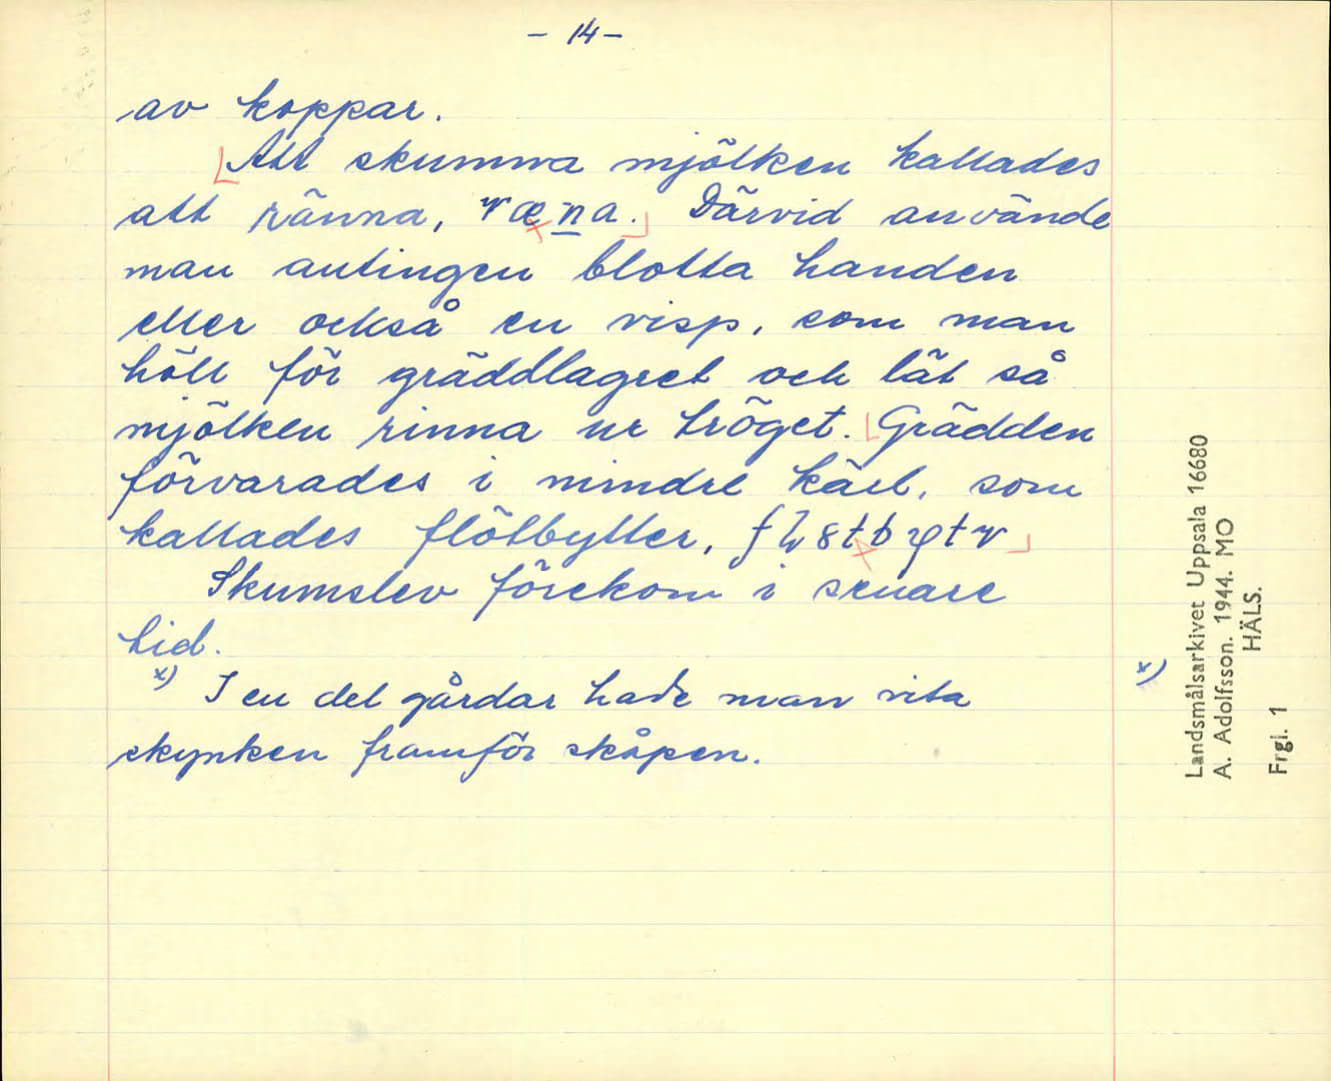 - 14 -
av koppar.
Att skumma mjölken kallades
att ränna, ræna. Därvid använde
man antingen blotta handen
eller också en visp, som man
höll för gräddlagret och lät så
mjölken rinna ur tröget. Grädden
förvarades i mindre kärl, som
kallades flötbytter,
Skumslev förekom i senare
tid.
x) I en del gårdar hade man vita
skynken framför skåpen.
x)
Landsmålsarkivet Uppsala 16680
A. Adolfsson. 1944. MO
HÄLS.
Frgl. 1